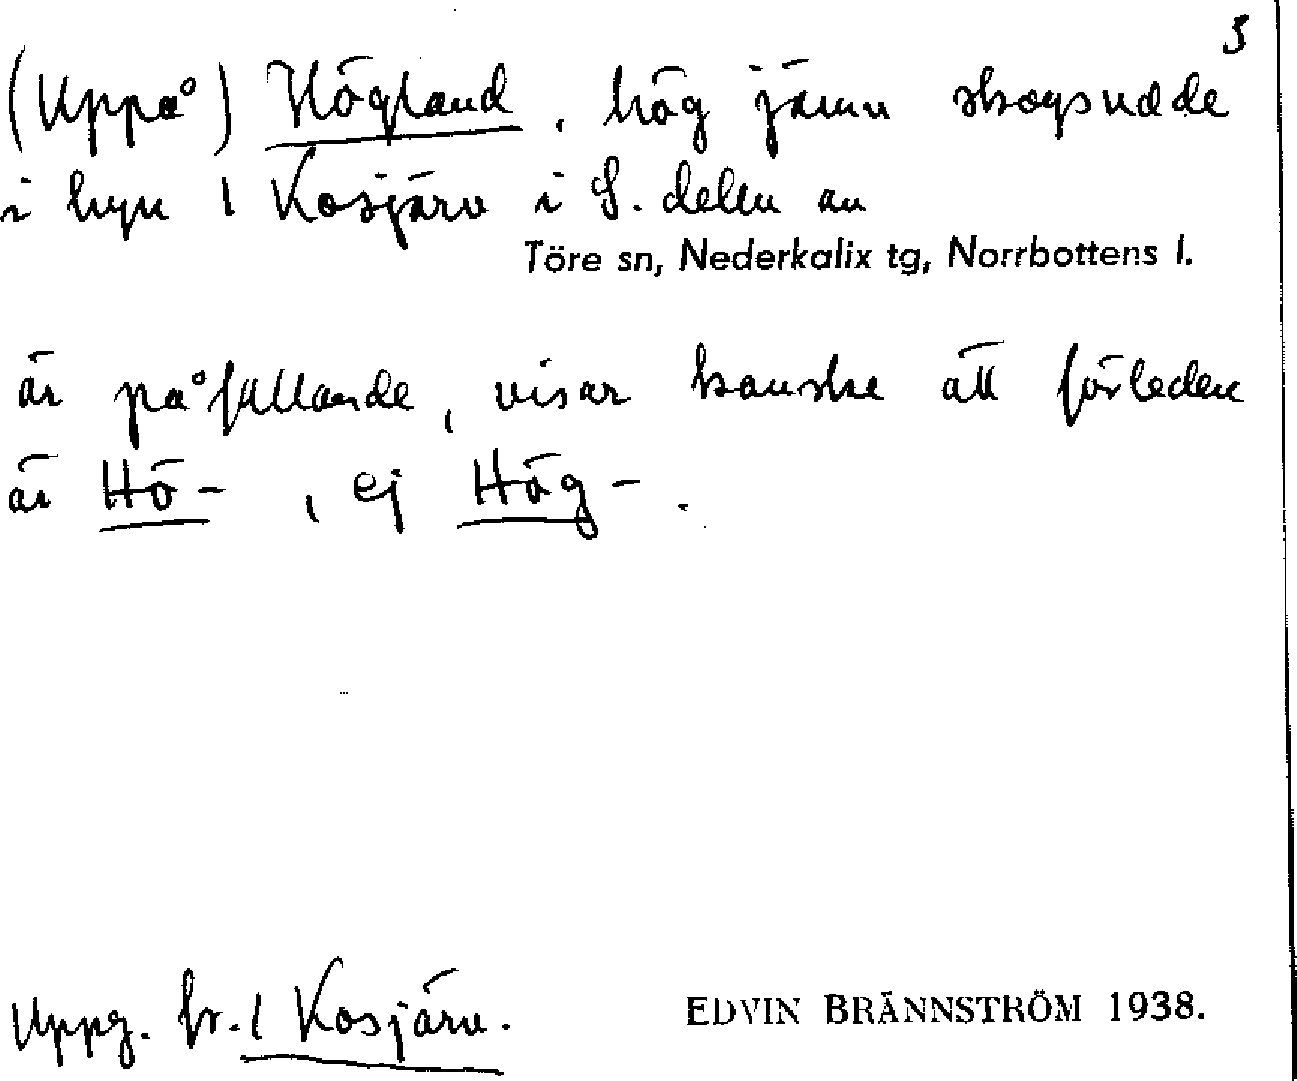 3
(Uppå) Högland, hög jämn skogsudde
i byn 1 Kosjärv i S. delen av
Töre sn, Nederkalix tg, Norrbottens l.
är påfallande, visar kanske att förleden
är Hö-, ej Hög-.
Uppg. fr. 1 Kosjärv.
EDVIN BRÄNNSTRÖM 1938.